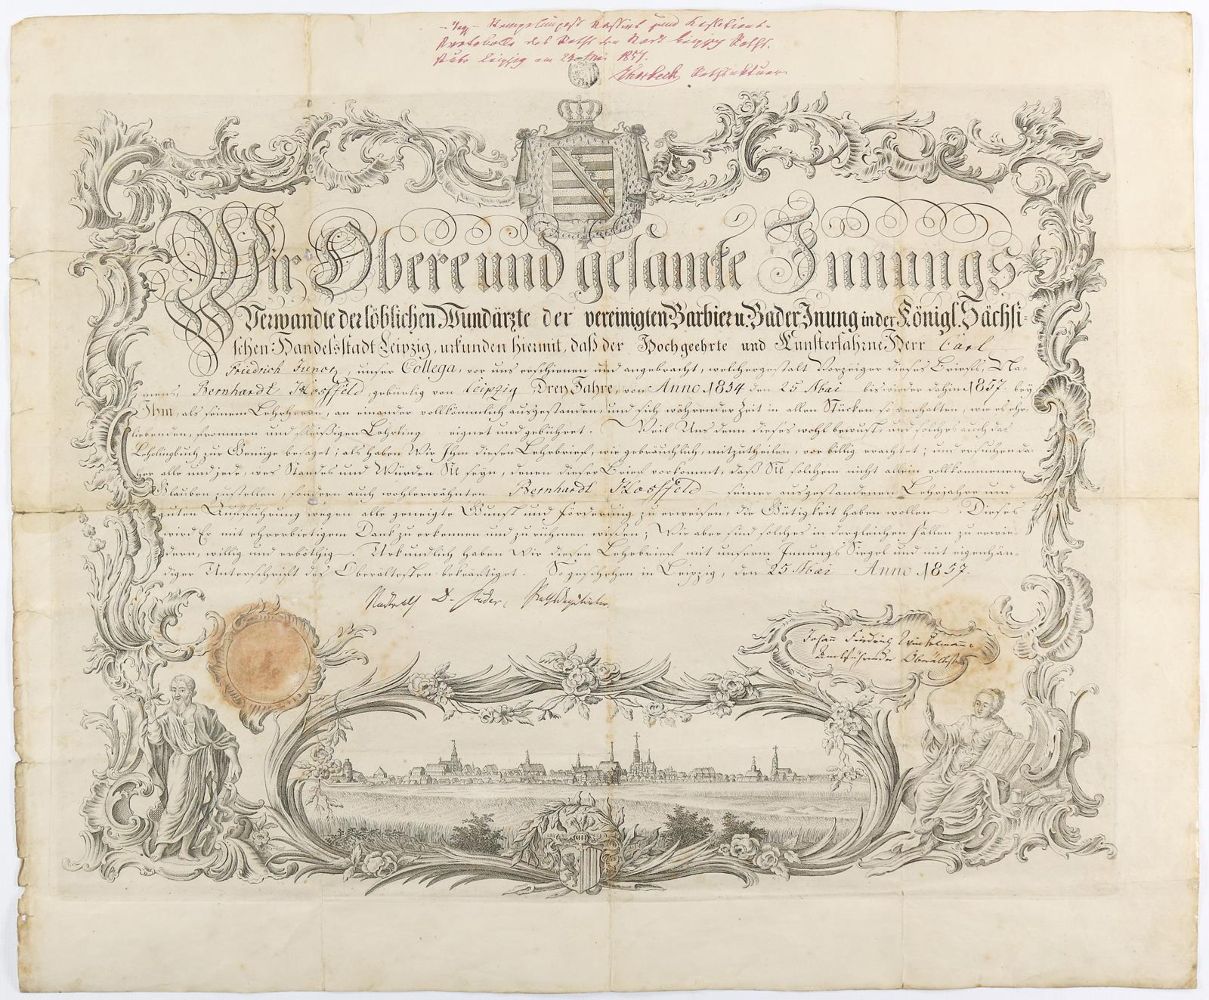 Leipzig am 1857.
Wir Obere und gesamte Innungs
Verwandte der löblichen Wundärzte der vereinigten Barbier u. Bader Inung in der Königl. Sächsi-
schen Handelsstadt Leipzig, urkunden hiermit, daß der Hochgeehrte und Kunsterfahrne Herr Carl
Friedrich , unser Collega, vor uns erschienen und angebracht, welchergestalt Vorzeiger dieses Briefs, Na-
mens, Bernhardt Hossfeld, gebürtig von Leipzig Drey Jahre, von Anno. 1854 den 25 Mai bis wieder dahin 1857. bey
Ihm als seinem Lehrherrn, an einander vollkömmlich ausgestanden, und sich während der Zeit in allen Stücken so verhalten, wie es ehr-
liebenden, frommen und fleißigen Lehrling eignet und gebühret. Weil Uns denn dieses wohl bewust, und solches auch das
Lehrlingbuch zur Genüge besaget; als haben Wir Ihm diesen Lehrbrief, wie gebräuchlich, mitzutheilen, vor billig erachtet; und ersuchen da-
her alle und jede, wes Standes und Würden Sie seyn, denen dieser Brief vorkommt, daß Sie solchem nicht allein vollkommenen
Glauben zustellen, sondern auch wohlerwähnten Bernhardt Hossfeld seiner ausgestandenen Lehrjahre und
guten Aufführung wegen alle geneigte Gunst und Förderung zu erweisen, die Gütigkeit haben wollen. Dieses
wird Er mit ehrerbietigem Dank zu erkennen und zu rühmen wissen; Wir aber sind solches in dergleichen Fällen zu erwie-
dern, willig und erböthig. Urkundlich haben Wir diesen Lehrbrief mit unserm Innungs Siegel und mit eigenhän-
diger Unterschrift des Oberältesten bekräftiget. So geschehen in Leipzig, den 25 Mai Anno. 1857.
Johann Friedrich Winkelmann
Oberältester